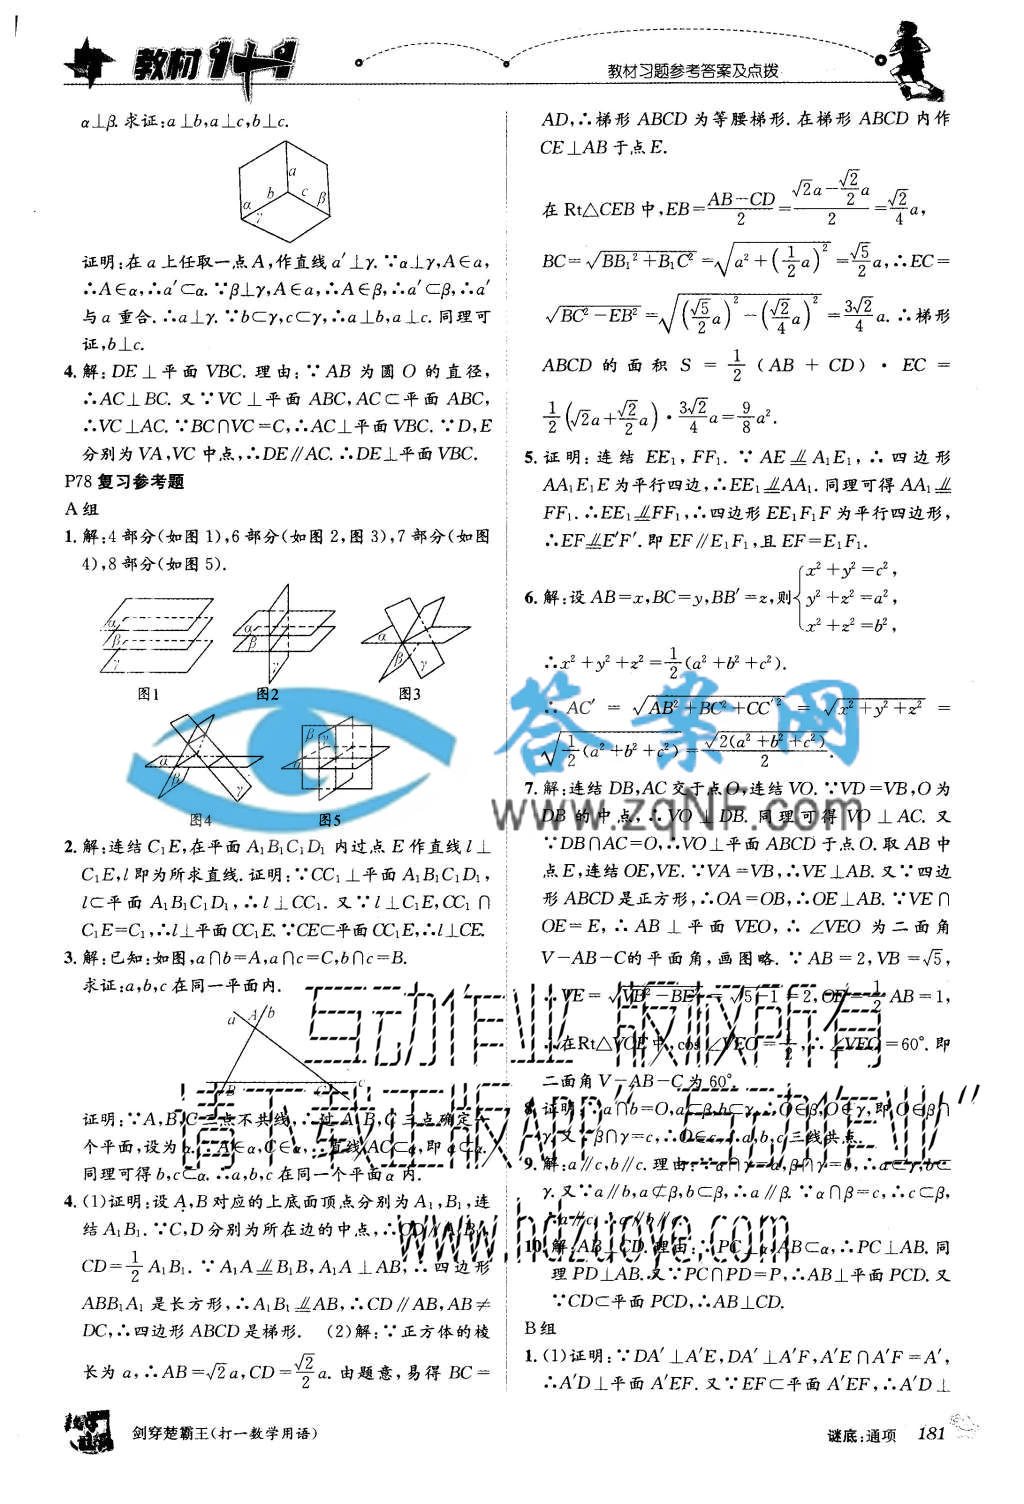 教材1+1
教材习题参考答案及点拨
α⊥β.求证:a⊥b,a⊥c,b⊥c.
a
b c β
α γ
证明:在a上任取一点A,作直线a′⊥γ.∵α⊥γ,A∈a,
∴A∈α,∴a′⊂α.∵β⊥γ,A∈a,∴A∈β,∴a′⊂β,∴a′
与a重合.∴a⊥γ.∵b⊂γ,c⊂γ,∴a⊥b,a⊥c.同理可
证,b⊥c.
4.解:DE⊥平面VBC.理由:∵AB为圆O的直径,
∴AC⊥BC.又∵VC⊥平面ABC,AC⊂平面ABC,
∴VC⊥AC.∵BC∩VC=C,∴AC⊥平面VBC.∵D,E
分别为VA,VC中点,∴DE∥AC.∴DE⊥平面VBC.
P78复习参考题
A组
1.解:4部分(如图1),6部分(如图2,图3),7部分(如图
4),8部分(如图5).
α β γ
图1 图2 图3
图4 图5
2.解:连结C₁E,在平面A₁B₁C₁D₁内过点E作直线l⊥
C₁E,l即为所求直线.证明:∵CC₁⊥平面A₁B₁C₁D₁,
l⊂平面A₁B₁C₁D₁,∴l⊥CC₁.又∵l⊥C₁E,CC₁∩
C₁E=C₁,∴l⊥平面CC₁E.∵CE⊂平面CC₁E,∴l⊥CE.
3.解:已知:如图,a∩b=A,a∩c=C,b∩c=B.
求证:a,b,c在同一平面内.
a A b
B C c
证明:∵A,B,C三点不共线,∴过A,B,C三点确定一
个平面,设为α.∵A∈α,C∈α,∴直线AC⊂α,即a⊂α.
同理可得b,c⊂α.∴a,b,c在同一个平面α内.
4.(1)证明:设A,B对应的上底面顶点分别为A₁,B₁,连
结A₁B₁.∵C,D分别为所在边的中点,∴CD∥A₁B₁,
CD=1/2 A₁B₁.∵A₁A⫽B₁B,A₁A⊥AB,∴四边形
ABB₁A₁是长方形,∴A₁B₁⫽AB,∴CD∥AB,AB≠
DC,∴四边形ABCD是梯形. (2)解:∵正方体的棱
长为a,∴AB=√2a,CD=√2/2 a.由题意,易得BC=
AD,∴梯形ABCD为等腰梯形.在梯形ABCD内作
CE⊥AB于点E.
在Rt△CEB中,EB=(AB-CD)/2=(√2a-√2/2 a)/2=√2/4 a,
BC=√(BB₁²+B₁C²)=√(a²+(1/2 a)²)=√5/2 a,∴EC=
√(BC²-EB²)=√((√5/2 a)²-(√2/4 a)²)=3√2/4 a.∴梯形
ABCD的面积S=1/2(AB+CD)·EC=
1/2(√2a+√2/2 a)·3√2/4 a=9/8 a².
5.证明:连结EE₁,FF₁.∵AE⫽A₁E₁,∴四边形
AA₁E₁E为平行四边,∴EE₁⫽AA₁.同理可得AA₁⫽
FF₁.∴EE₁⫽FF₁,∴四边形EE₁F₁F为平行四边形,
∴EF⫽E′F′.即EF∥E₁F₁,且EF=E₁F₁.
6.解:设AB=x,BC=y,BB′=z,则{x²+y²=c²,
y²+z²=a²,
x²+z²=b²,
∴x²+y²+z²=1/2(a²+b²+c²).
∴AC′=√(AB²+BC²+CC′²)=√(x²+y²+z²)=
√(1/2(a²+b²+c²))=√(2(a²+b²+c²))/2.
7.解:连结DB,AC交于点O,连结VO.∵VD=VB,O为
DB的中点,∴VO⊥DB.同理可得VO⊥AC.又
∵DB∩AC=O,∴VO⊥平面ABCD于点O.取AB中
点E,连结OE,VE.∵VA=VB,∴VE⊥AB.又∵四边
形ABCD是正方形,∴OA=OB,∴OE⊥AB.∵VE∩
OE=E,∴AB⊥平面VEO,∴∠VEO为二面角
V-AB-C的平面角,画图略.∵AB=2,VB=√5,
∴VE=√(VB²-BE²)=√(5-1)=2,OE=1/2 AB=1,
∴在Rt△VOE中,cos∠VEO=1/2,∴∠VEO=60°.即
二面角V-AB-C为60°.
8.证明:∵a∩b=O,a⊂β,b⊂γ,∴O∈β,O∈γ,即O∈β∩
γ.又∵β∩γ=c,∴O∈c,∴a,b,c三线共点.
9.解:a∥c,b∥c.理由:∵α∩γ=a,β∩γ=b,∴a⊂γ,b⊂
γ.又∵a∥b,a⊄β,b⊂β,∴a∥β.∵α∩β=c,∴c⊂β,
∴a∥c,∴a∥b∥c.
10.解:AB⊥CD.理由:∵PC⊥α,AB⊂α,∴PC⊥AB.同
理PD⊥AB.又∵PC∩PD=P,∴AB⊥平面PCD.又
∵CD⊂平面PCD,∴AB⊥CD.
B组
1.(1)证明:∵DA′⊥A′E,DA′⊥A′F,A′E∩A′F=A′,
∴A′D⊥平面A′EF.又∵EF⊂平面A′EF,∴A′D⊥
答案网
www.zqNF.com
互动作业 版权所有
请下载正版APP “互动作业”
www.hdzuoye.com
剑穿楚霸王(打一数学用语)
谜底:通项 181